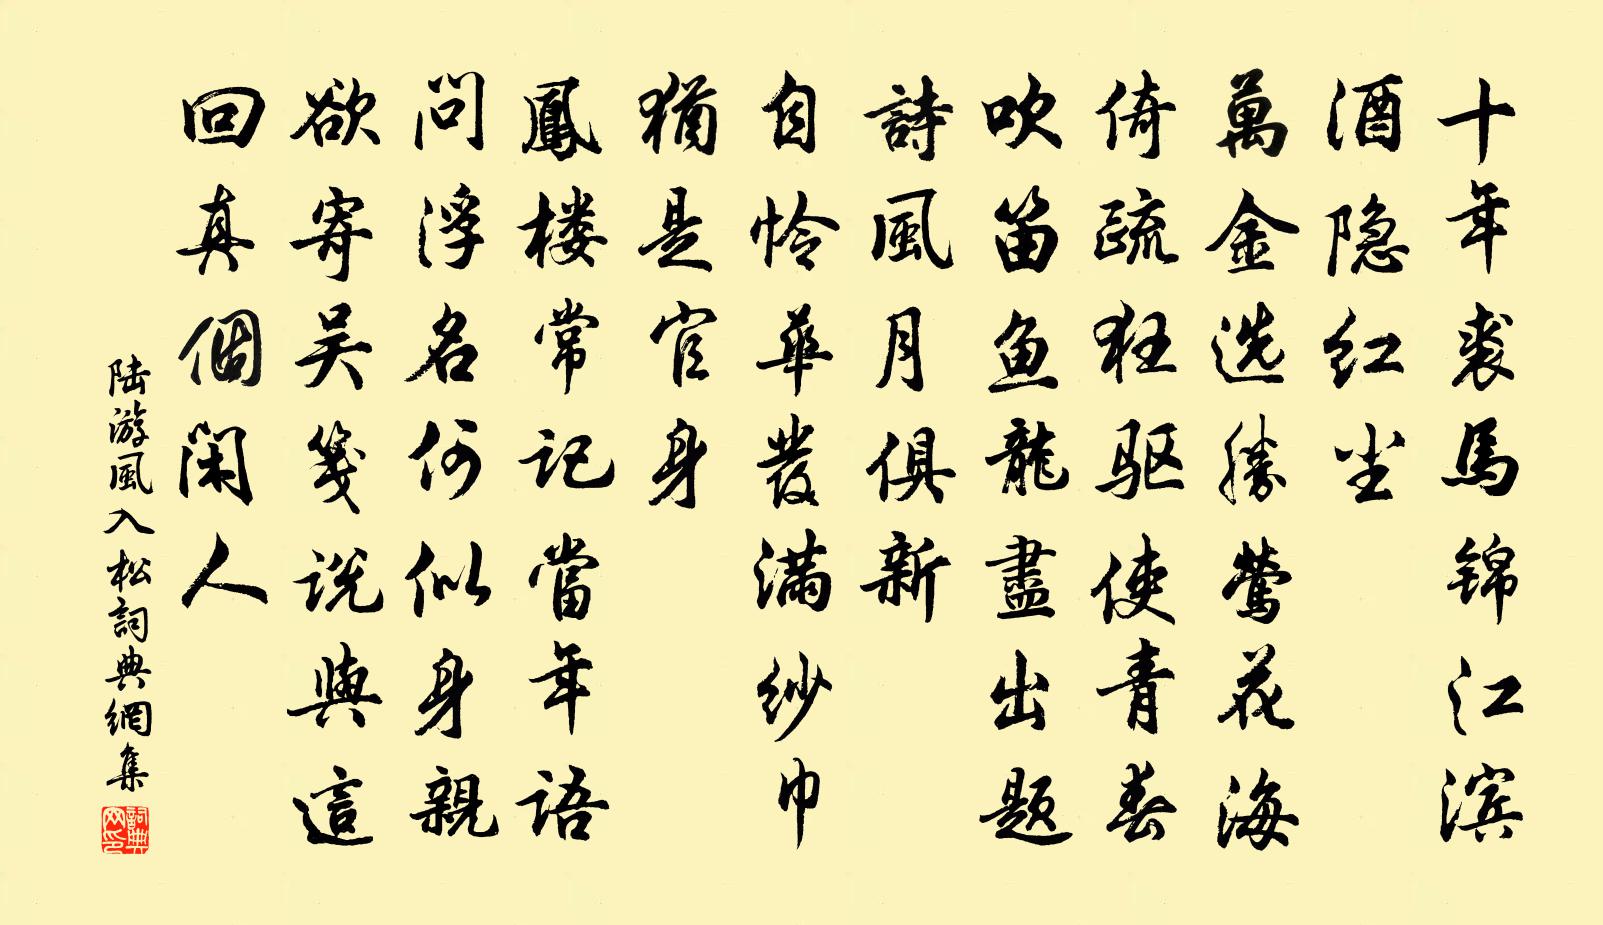 十年裘馬锦江滨
酒隐红尘
萬金选勝莺花海
倚疏狂驱使青春
吹笛鱼龍盡出题
詩風月俱新
自怜華發满纱巾
猶是官身
鳳楼常记當年语
問浮名何似身親
欲寄吴笺说與這
回真個閑人
陆游風入松詞典網集
詞典网印